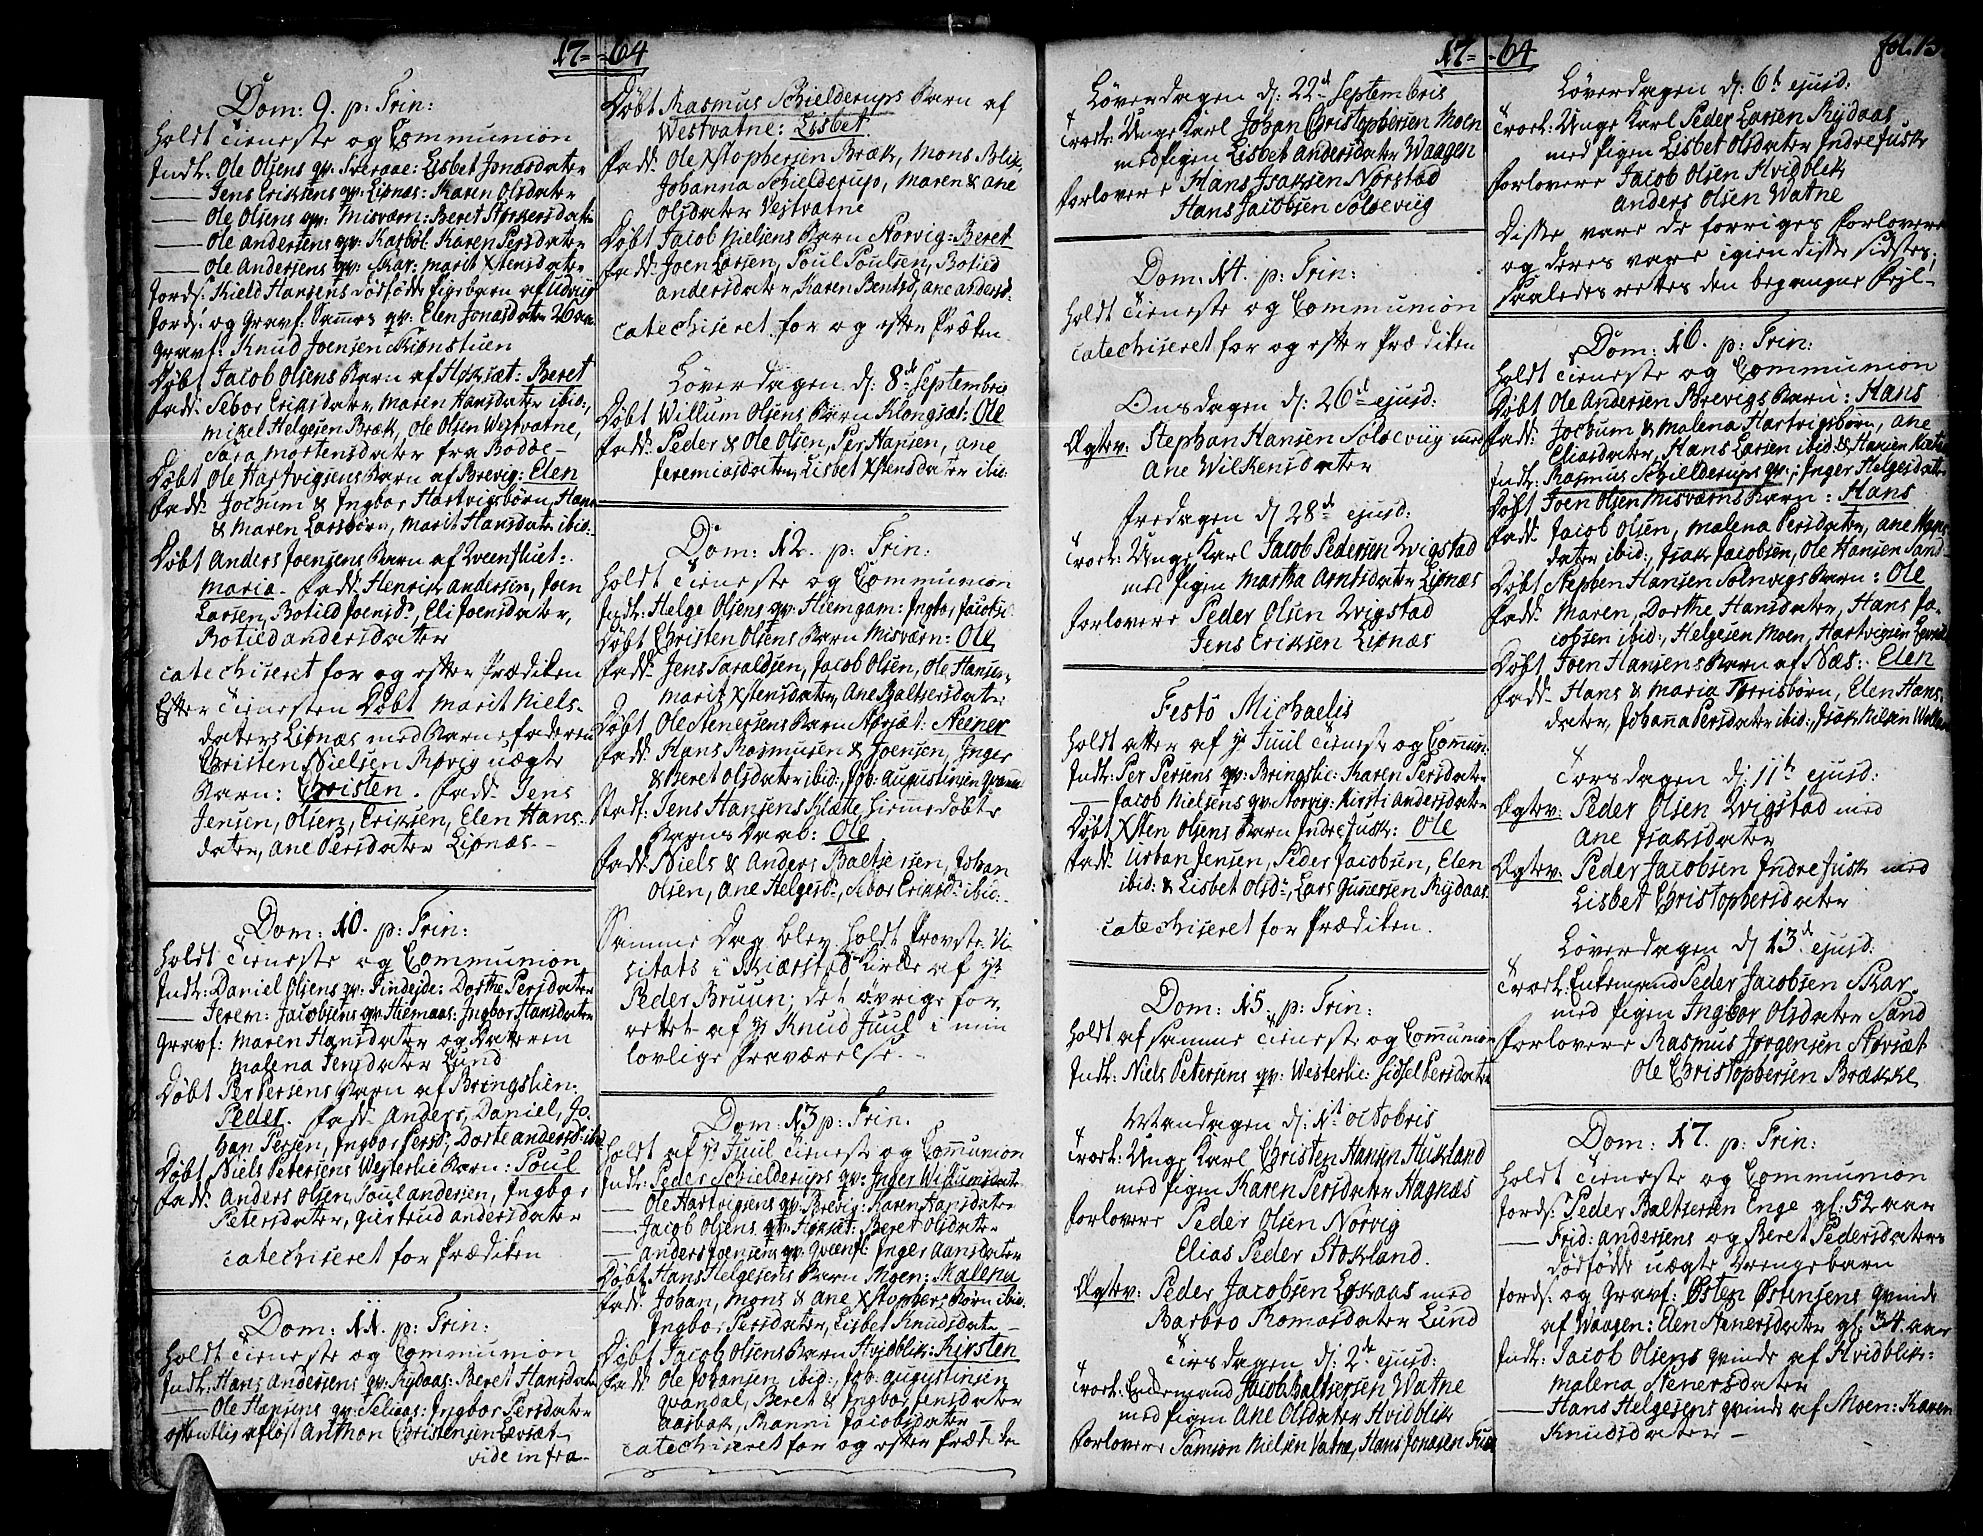 17-64
Dom: 9. p: Trin:
Holdt Tieneste og Communion
Indl: Ole Olsens qv: Tveraae: Lisbet Jonasdater
— Jens Eriksens qv: Liønæs: Karen Olsdater
— Ole Olsens qv: Misværn: Beret Størkersdater
— Ole Andersens qv: Karbøl: Karen Persdater
— Ole Andersens qv: Skar: Marit Xstensdater
Jords: Kield Hansens dødfødde Pigebarn af Udvig
Jords: og Gravf: qv: Elen Jonasdater 26 aar
Gravf: Knud Joensen Kiønstuen
Døbt Jacob Olsens Barn af Høksæt: Beret
Fadd: Sebor Eriksdater, Maren Hansdater ibid:,
Mikel Helgesen Bræk, Ole Olsen Westvatne,
Sara Mortensdater fra Bodøe-
Døbt Ole Hartvigsens Barn af Brevig: Elen
Fadd: Jochum & Ingbor Hartvigsbørn, Hans
& Maren Larsbørn, Marit Hansdater ibid:
Døbt Anders Joensens Barn af Qveenfluet:
Maria. Fadd: Henrik Andersen, Joen
Larsen, Botild Joensd:, Eli Joensdater,
Botild Andersdater
catechiseret for og efter Prædiken
Efter Tienesten Døbt Marit Niels-
daters Liønæs med Barnefaderen
Christen Nielsen Røvig uægte
Barn: Christen. Fadd: Jens
Jensen, Olsen, Eriksen, Elen Hans-
dater, Ane Persdater Liønæs.-
Dom: 10. p: Trin:
Holdt Tieneste og Communion
Indl: Daniel Olsens qv: Tindejde: Dorthe Persdater
— Jerem: Jacobsens qv: Hiemaas: Ingbor Hansdater
Gravf: Maren Hansdater og Datteren
Malena Jensdater Lund
Døbt Per Persens Barn af Bringslien:
Peder. Fadd: Anders, Daniel, Jo-
han Persen, Ingbor Persd:, Dorte Andersd: ibid
Døbt Niels Petersens Westerlie Barn: Poul
Fadd: Anders Olsen, Poul Andersen, Ingbor
Petersdater, Giertrud Andersdater
catechiseret for Prædiken
Dom: 11. p: Trin:
Holdt Tieneste og Communion
Indl: Hans Andersens qv: Rydaas: Beret Hansdater
— Ole Hansens qv: Seliaas: Ingbor Persdater
offentlig afløst Anthon Christensen
vide infra-
Døbt Rasmus Schielderups Barn af
Westvatne: Lisbet
Fadd: Ole Xstophersen Bræk, Mons Blix,
Johanna Schielderup, Maren & Ane
Olsdater Vestvatne
Døbt Jacob Nielsens Barn Norvig: Beret
Fadd: Joen Larsen, Poul Poulsen, Botild
Andersdater, Karen Bentsd, Ane Andersd:
catechiseret for og efter Præken
Løverdagen d: 8de Septembris
Døbt Willum Olsens Barn Klongsæt: Ole
Fadd: Peder & Ole Olsen, Per Hansen, Ane
Jeremiasdater, Lisbet Xstensdater ibid:
Dom: 12. p: Trin:
Holdt Tieneste og Communion
Indl: Helge Olsens qv: Hiemgam: Ingbor Jacobsd
Døbt Christen Olsens Barn Misværn: Ole
Fadd: Jens Saraldsen, Jacob Olsen, Ole Hansen,
Marit Xstensdater, Ane Baltsersdater
Døbt Ole Stenersens Barn Størsæt: Steiner
Fadd: Hans Rasmusen & Joensen, Inger
& Beret Olsdater ibid:, Joh: Augustinsen Qvand
Stadf: Jens Hansens Klætte, hiemedøbte
Barns Daab: Ole
Fadd: Niels & Anders Baltsersen, Johan
Olsen, Ane Helgesd:, Sebor Eriksd: ibid:-
Samme Dag blev holdt Provste Vi-
sitats i Skiærstad Kirke af Hr
Peder Bruun; det øvrige for-
rettet af Hr Knud Juul i min
lovlige Fraværelse.-
Dom: 13 p: Trin.
Holdt af Hr Juul Tieneste og Communion
Indl: Peder Schielderups qv: Inger Willumsdat:
— Ole Hartvigsens qv: Brevig: Karn Hansdater
— Jacob Olsens qv: Høkset: Beret Olsdater
— Anders Joensens qv: Qveenfl: Inger Aansdater
Døbt Hans Helgesens Barn Ingen: Malena
Fadd: Johan, Mons & Ane Xstophers Børn ibid:
Ingbor Persdater, Lisbet Knudsdat-
Døbt Jacob Olsens Barn Hvidblik: Kirsten
Fadd: Ole Johansen ibid:, Joh: Augustinsen
Qvandal, Beret & Ingbor Jensdater
Aasbak, Ranni Jacobsdater
catechiseret for og efter Prædiken
17-64
Løverdagen d: 22d Septembris
Trol: Unge Karl Johan Christophersen Moen
med Pigen Lisbet Andersdater Waagen
Forlovere Hans Isaksen Norstad
Hans Jacobsen Solsevug
Dom: 14. p: Trin:
Holdt Tieneste og Communion
catechiseret for og efter Prædiken
Onsdagen d: 26d ejusd:
Ægtev: Stephan Hansen Solsevug med
Ane Wilkensdater
Fredagen d: 28d ejusd:
Trol: Unge Karl Jacob Pedersen Qvigstad
med Pigen Martha Arntsdater Liønæs
Forlovere Peder Olsen Qvigstad
Jens Eriksen Liønæs
Festo Michaelis
Holdt atter af Hr Juul Tieneste og Commun:
Indl: Per Persens qv: Bringslie: Karen Persdater
— Jacob Nielsens qv: Norvig: Kirsti Andersdater
Døbt Xsten Olsens Barn Indre Fusk: Ole
Fadd: Urban Jensen, Peder Jacobsen, Elen
ibid: & Lisbet Olsd:, Lars Gunnersen Rydaas
catechiseret for Prædiken.
Dom: 15. p: Trin:
Holdt af samme Tieneste og Communion
Indl: Niels Petersens qv: Westerlie: Sidsel Persdater
Mandagen d: 1st Octobris
Trol: Unge Karl Christen Hansen Hukland
med Pigen Karen Persdater Hagnæs
Forlovere Peder Olsen Norvig
Elias Peder Stokland.
Ægtev: Peder Jacobsen Løkaas med
Barbro Tomasdater Lund
Tirsdagen d: 2de ejusd:
Trol: Enkemand Jacob Baltsersen Watne
med Pigen Ane Olsdater Hvidblik
Forlovere Samson Nielsen Vatne, Hans Jonasen
fol. 15
Løverdagen d: 6t ejusd:
Trol: Unge Karl Peder Larsen Rydaas
med Pigen Lisbet Olsdater Indre Fusk
Forlovere Jacob Olsen Hvidblik
Anders Olsen Watne
Disse vare de forriges Forlovere
og deres vare igien disse sidstes;
saaledes rettes den begangne Fejl-
Dom: 16. p: Trin:
Holdt Tieneste og Communion
Døbt Ole Andersen Brevigs Barn: Hans
Fadd: Jochum & Malena Hartvigsbørn, Ane
Eliasdater, Hans Larsen ibid: &
Indl: Rasmus Schielderups qv:; Inger Helgesdater
Døbt Joen Olsen Misværns Barn: Hans
Fadd: Jacob Olsen, Malena Persdater, Ane Hans-
dater ibid:, Isak Jacobsen, Ole Hansen Sand-
Døbt Stephen Hansen Solsvigs Barn: Ole
Fadd: Maren, Dorthe Hansdater, Hans Ja-
cobsen ibid:, Helgesen Moen, Hartvigsen
Døbt Joen Hansens Barn af Næs: Elen
Fadd: Hans & Maria Torrisbørn, Elen Hans-
dater, Johanna Persdater ibid:, Isak Nilsen
Torsdagen d: 11t ejusd:
Ægtev: Peder Olsen Qvigstad med
Ane Isaksdater
Ægtev: Peder Jacobsen Indre Fusk med
Lisbet Christophersdater
Løverdagen d 13d ejusd:
Trol: Enkemand Peder Jacobsen Skar
med Pigen Ingbor Olsdater Sand
Forlovere Rasmus Jørgensen Størsæt
Ole Christophersen Brække
Dom: 17. p: Trin:
Holdt Tieneste og Communion
Jords: Peder Baltsersen Enge gl: 52 aar
— Frid: Andersens og Beret Pedersdaters
dødfødde uægte Drengebarn
Jords: og Gravf: Østen Østensens qvinde
af Waagen: Elen Stenersdater gl: 34 aar
Indl: Jacob Olsens qvinde af Hvidblik:
Malena Stenersdater
— Hans Helgesens qvinde af Moen: Karen
Knudsdater-